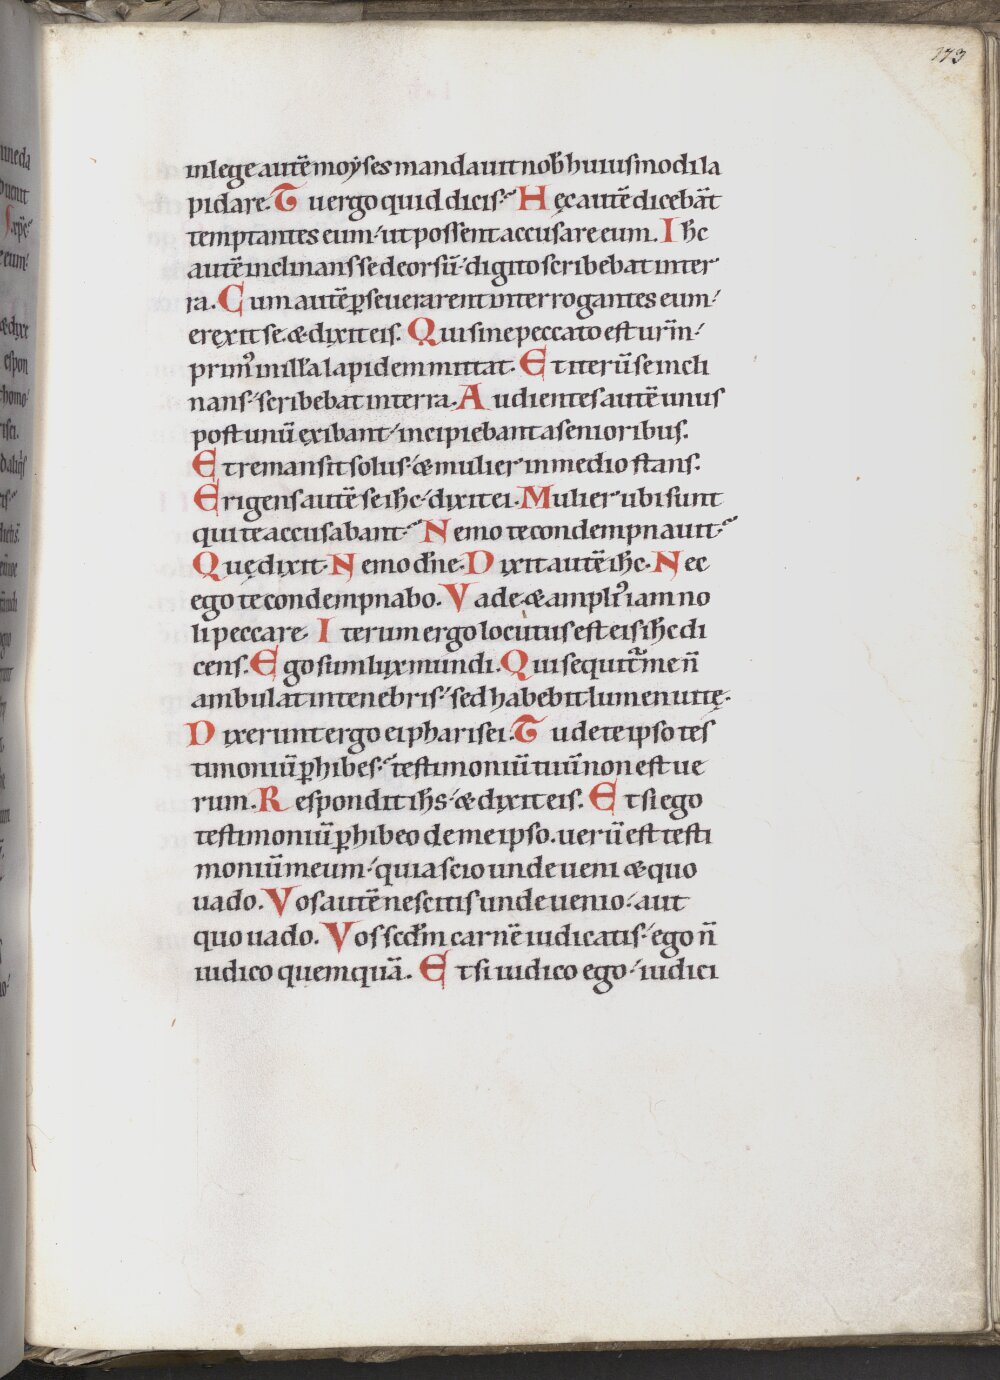 173
in lege autē moẏses mandauit nob̄ huiusmodi la
pidare. Tu ergo quid dicis? Hęc autē dicebāt
temptantes eum, ut possent accusare eum. Ihc̄
autē inclinans se deorsū, digito scribebat in ter
ra. Cum autē ꝑseuerarent interrogantes eum,
erexit se. & dixit eis. Qui sine peccato est ur̄m,
primꝰ in illā lapidem mittat. Et iterū se incli
nans, scribebat in terra. Audientes autē unus
post unū exibant, incipiebant a senioribus.
Et remansit solus, & mulier in medio stans.
Erigens autē se ihc̄, dixit ei. Mulier ubi sunt
qui te accusabant? Nemo te condempnauit?
Quę dixit. Nemo dn̄e. Dixit autē ihc̄. Nec
ego te condempnabo. Vade. & ampliꝰ iam no
li peccare. Iterum ergo locutus est eis ihc̄ di
cens. Ego sum lux mundi. Qui sequit᷑ me n̄
ambulat in tenebris, sed habebit lumen uitę.
Dixerunt ergo ei pharisei. Tu de te ipso tes
timoniū ꝑhibes, testimoniū tuū non est ue
rum. Respondit ihs̄, & dixit eis. Et si ego
testimoniū ꝑhibeo de me ipso. uerū est testi
moniū meum, quia scio unde ueni & quo
uado. Vos autē nescitis unde uenio, aut
quo uado. Vos scd̄m carnē iudicatis, ego n̄
iudico quemquā. Et si iudico ego, iudici